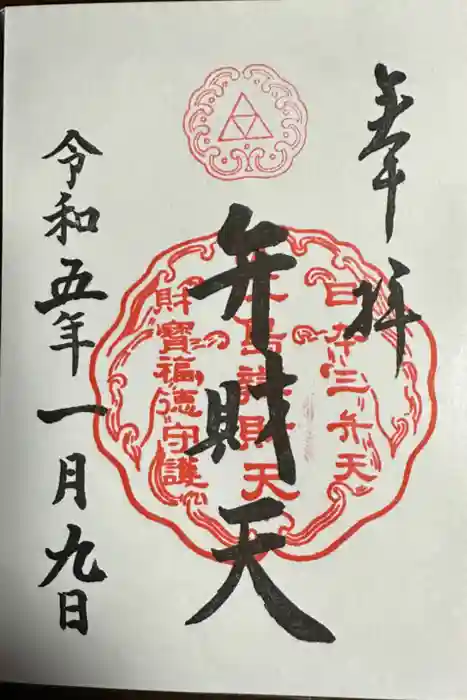 奉拝
日本三弁天
江島辨財天
財寶福徳守護
弁財天
令和五年一月九日